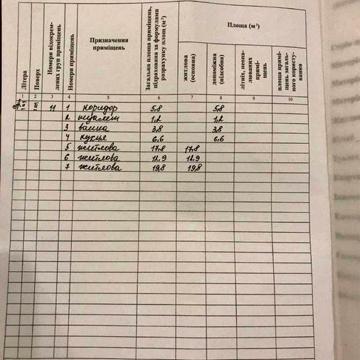 Літера
Поверх
Номери відокрем-
лених груп приміщень
Номери приміщень
Призначення
приміщень
Загальна площа приміщень,
підрахована за формулами
розрахунку площ (м²)
Площа (м²)
житлова
(основна)
допоміжна
(підсобна)
літніх, неопа-
люваних
примі-
щень
площа примі-
щень загаль-
ного користу-
вання
1 2 3 4 5 6 7 8 9 10
11 1 коридор 5.8 5.8
2 туалет 1.2 1.2
3 ванна 3.8 3.8
4 кухня 6.6 6.6
5 житлова 17.8 17.8
6 житлова 12.9 12.9
7 житлова 19.8 19.8